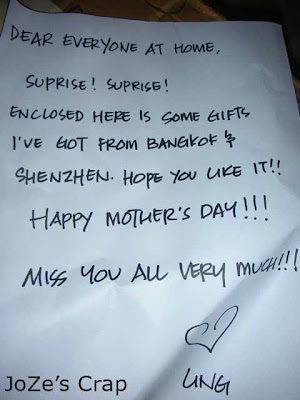 DEAR EVERYONE AT HOME,
SUPRISE! SUPRISE!
ENCLOSED HERE IS SOME GIFTS
I'VE GOT FROM BANGKOK &
SHENZHEN. HOPE YOU LIKE IT!!
HAPPY MOTHER'S DAY!!!
MISS YOU ALL VERY MUCH!!!
LING
JoZe's Crap